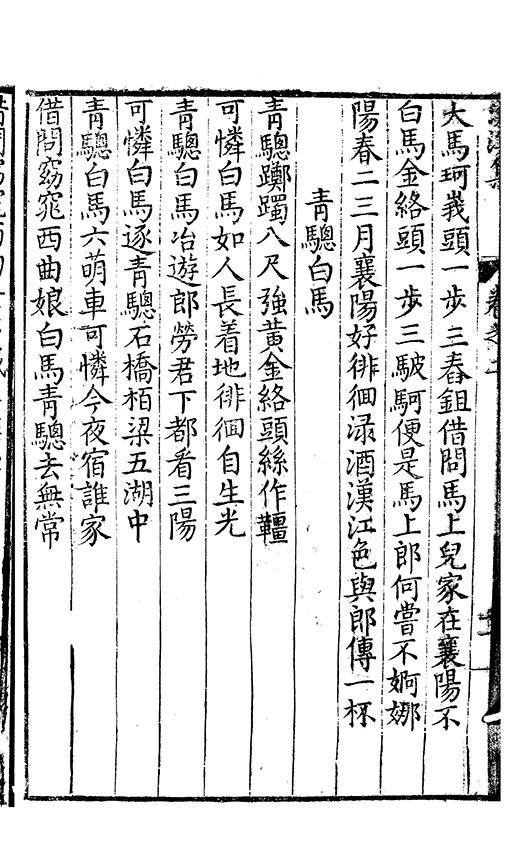 大馬珂峩頭一步三舂鉏借問馬上兒家在襄陽不
白馬金絡頭一步三駊騀便是馬上郎何嘗不婀娜
陽春二三月襄陽好徘徊淥酒漢江色與郎傳一杯
青驄白馬
青驄躑躅八尺強黃金絡頭絲作韁
可憐白馬如人長着地徘徊自生光
青驄白馬冶遊郎勞君下都看三陽
可憐白馬逐青驄石橋栢梁五湖中
青驄白馬六萌車可憐今夜宿誰家
借問窈窕西曲娘白馬青驄去無常